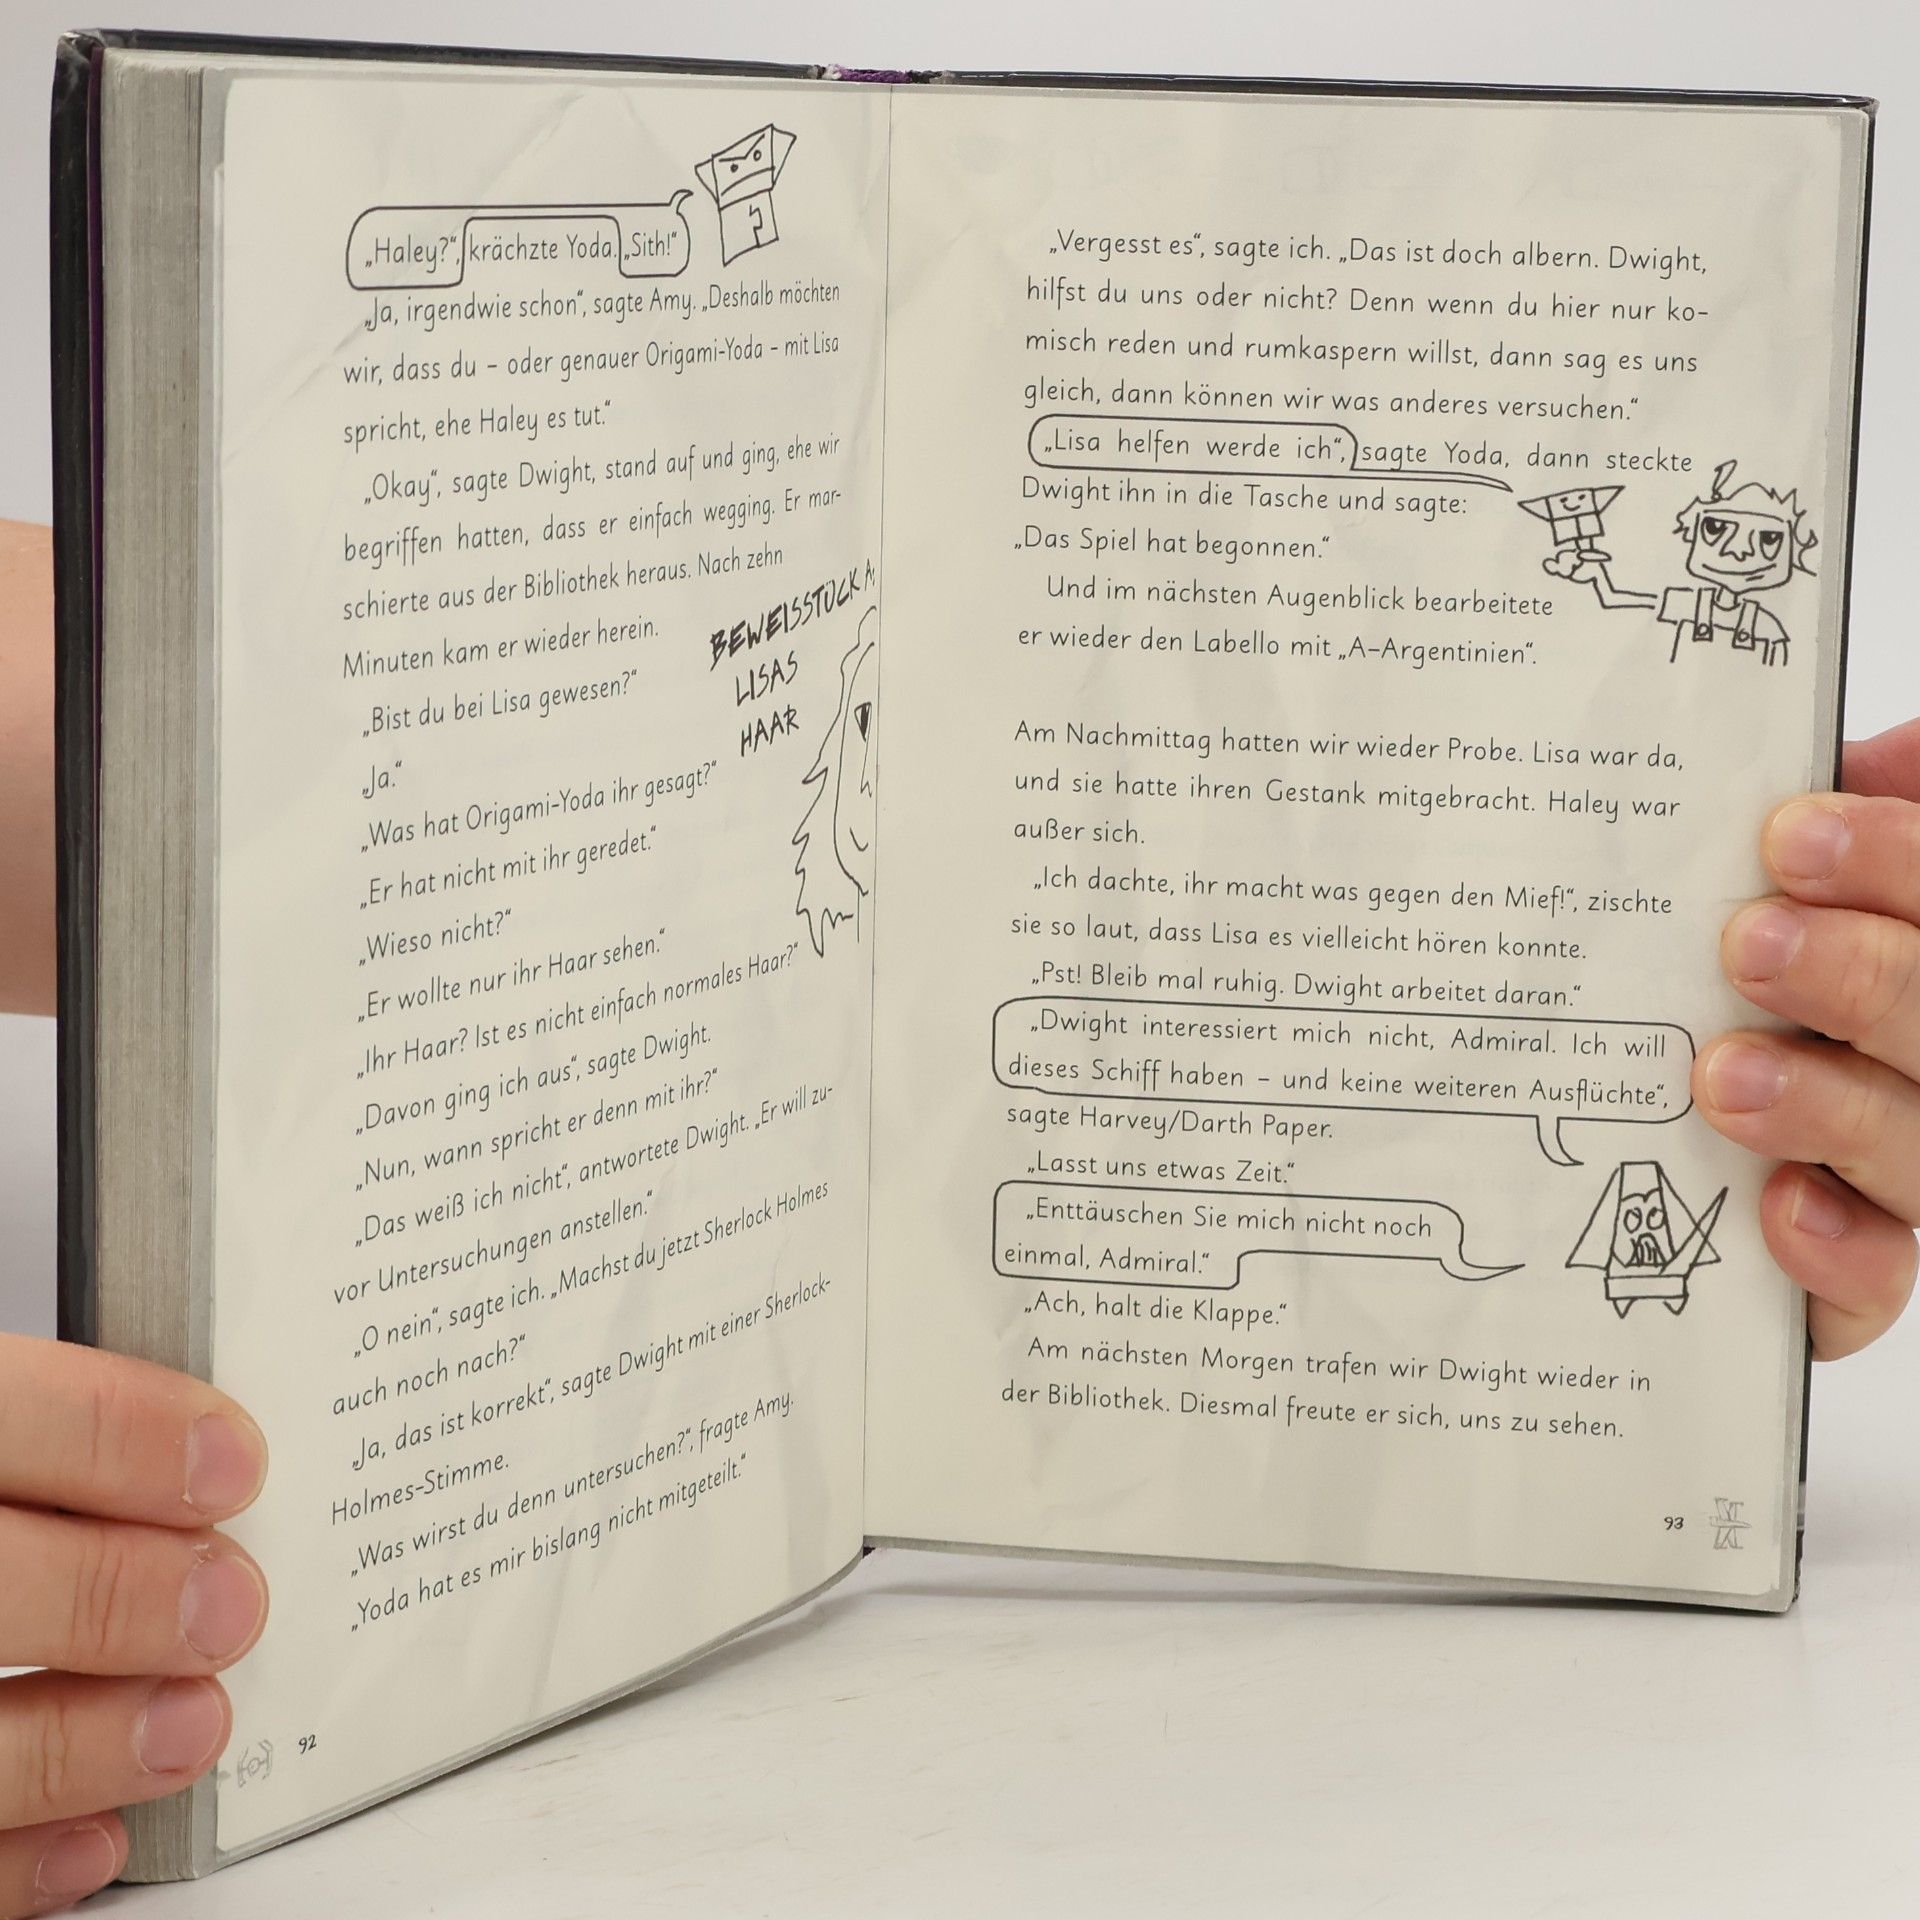 „Haley?“, krächzte Yoda. „Sith!“
„Ja, irgendwie schon“, sagte Amy. „Deshalb möchten
wir, dass du – oder genauer Origami-Yoda – mit Lisa
spricht, ehe Haley es tut.“
„Okay“, sagte Dwight, stand auf und ging, ehe wir
begriffen hatten, dass er einfach wegging. Er mar-
schierte aus der Bibliothek heraus. Nach zehn
Minuten kam er wieder herein.
„Bist du bei Lisa gewesen?“
„Ja.“
„Was hat Origami-Yoda ihr gesagt?“
„Er hat nicht mit ihr geredet.“
„Wieso nicht?“
„Er wollte nur ihr Haar sehen.“
„Ihr Haar? Ist es nicht einfach normales Haar?“
„Davon ging ich aus“, sagte Dwight.
„Nun, wann spricht er denn mit ihr?“
„Das weiß ich nicht“, antwortete Dwight. „Er will zu-
vor Untersuchungen anstellen.“
„O nein“, sagte ich. „Machst du jetzt Sherlock Holmes
auch noch nach?“
„Ja, das ist korrekt“, sagte Dwight mit einer Sherlock-
Holmes-Stimme.
„Was wirst du denn untersuchen?“, fragte Amy.
„Yoda hat es mir bislang nicht mitgeteilt.“
BEWEISSTÜCK A:
LISAS
HAAR
92
„Vergesst es“, sagte ich. „Das ist doch albern. Dwight,
hilfst du uns oder nicht? Denn wenn du hier nur ko-
misch reden und rumkaspern willst, dann sag es uns
gleich, dann können wir was anderes versuchen.“
„Lisa helfen werde ich“, sagte Yoda, dann steckte
Dwight ihn in die Tasche und sagte:
„Das Spiel hat begonnen.“
Und im nächsten Augenblick bearbeitete
er wieder den Labello mit „A-Argentinien“.
Am Nachmittag hatten wir wieder Probe. Lisa war da,
und sie hatte ihren Gestank mitgebracht. Haley war
außer sich.
„Ich dachte, ihr macht was gegen den Mief!“, zischte
sie so laut, dass Lisa es vielleicht hören konnte.
„Pst! Bleib mal ruhig. Dwight arbeitet daran.“
„Dwight interessiert mich nicht, Admiral. Ich will
dieses Schiff haben – und keine weiteren Ausflüchte“,
sagte Harvey/Darth Paper.
„Lasst uns etwas Zeit.“
„Enttäuschen Sie mich nicht noch
einmal, Admiral.“
„Ach, halt die Klappe.“
Am nächsten Morgen trafen wir Dwight wieder in
der Bibliothek. Diesmal freute er sich, uns zu sehen.
93